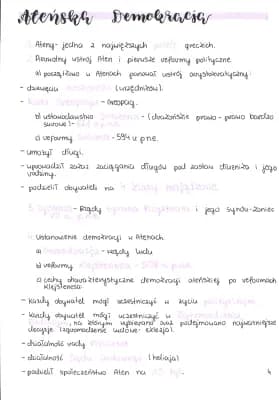 Ateńska Demokracja
1. Ateny - jedna z największych polis greckich.
2. Pierwotny ustrój Aten i pierwsze reformy polityczne.
a) początkowo w Atenach panował ustrój arystokratyczny:
- dziewięciu archontów (urzędników).
- Rada Starszych - Areopag.
b) ustawodawstwo - (drakońskie prawo - prawo bardzo
surowe)
c) reformy - 594 r. p.n.e.
- umorzył długi.
- wprowadził zakaz zaciągania długów pod zastaw dłużnika i jego
rodziny.
- podzielił obywateli na 4 klasy majątkowe
3. Rządy i jego synów - koniec
VI w. p.n.e.
4. Ustanowienie demokracji w Atenach
a) Demokracja - rządy ludu
b) reformy Klejstenesa - 508 r. p.n.e.
c) cechy charakterystyczne demokracji ateńskiej po reformach
Klejstenesa:
- każdy obywatel mógł uczestniczyć w życiu politycznym
- każdy obywatel mógł uczestniczyć w Zgromadzeniu
na którym wybierano oraz podejmowano najważniejsze
decyzje (zgromadzenie ludowe - eklezja).
- działalność rady
- działalność Sądu Ludowego (heliaja)
- podzielił społeczeństwo Aten na 10 fyl.